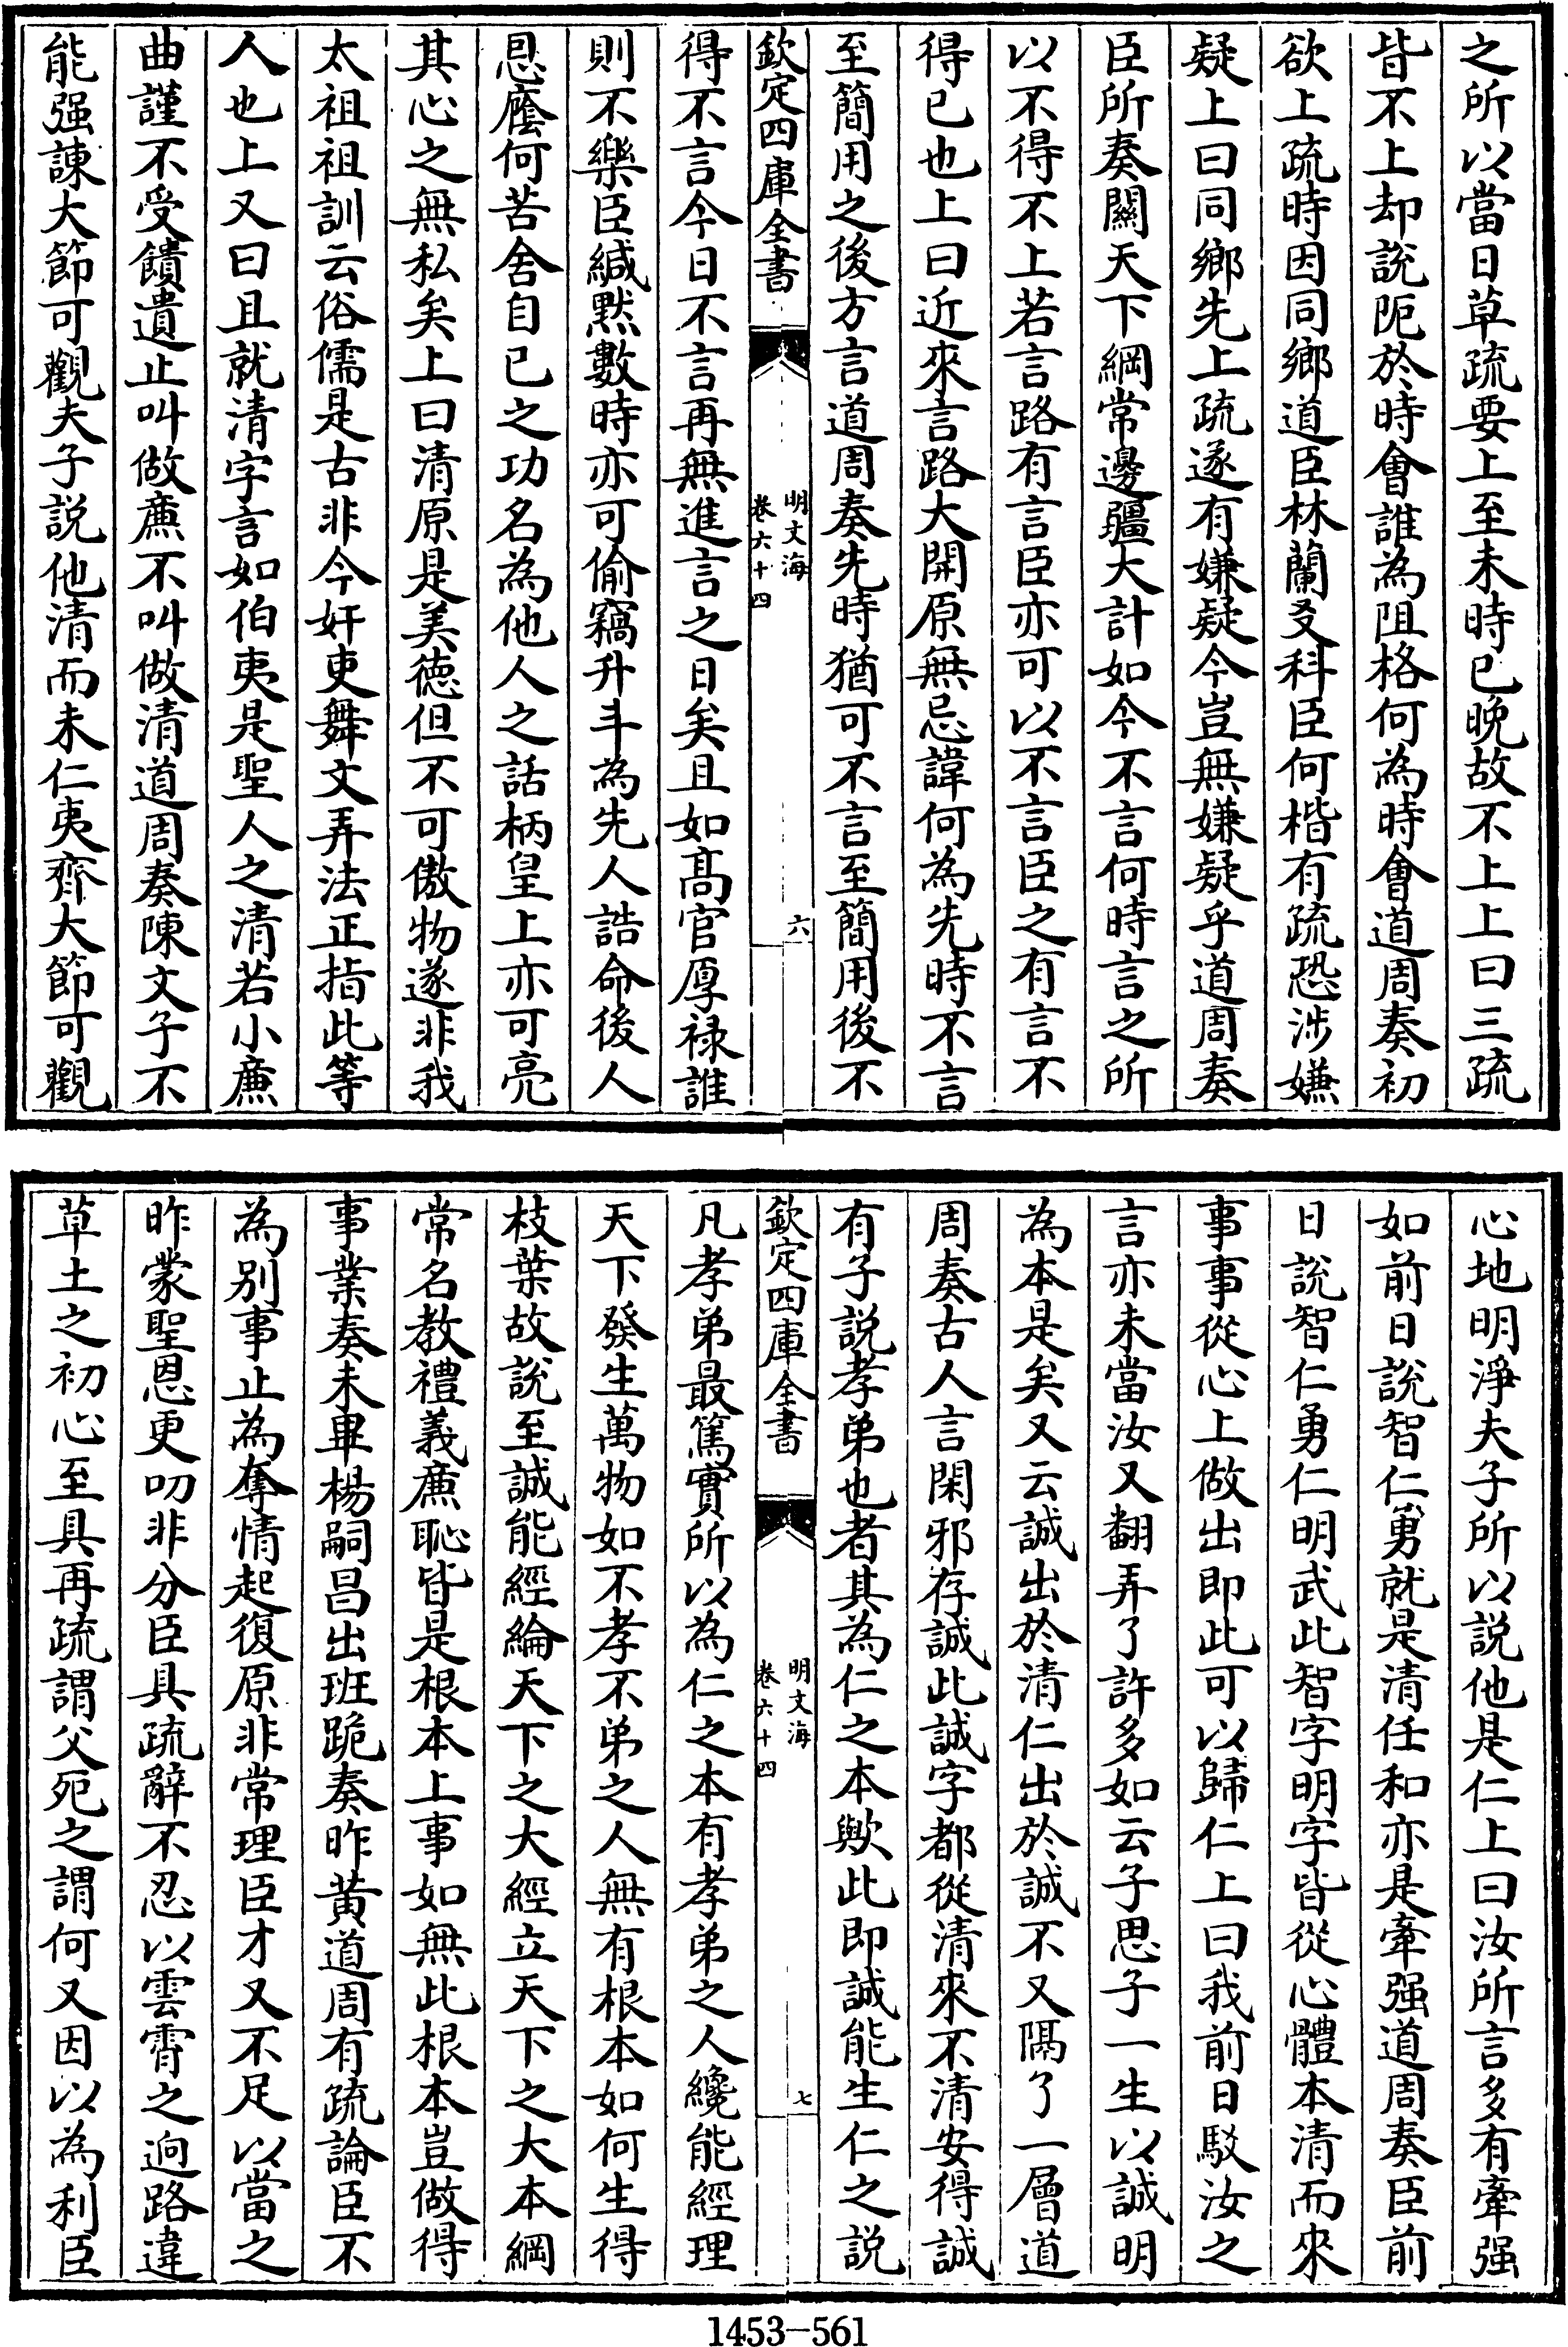 之所以當日草疏要上至未時已晚故不上上曰三疏
皆不上却說阨於時會誰為阻格何為時會道周奏初
欲上疏時因同鄉道臣林蘭友科臣何楷有疏恐涉嫌
疑上曰同鄉先上疏遂有嫌疑今豈無嫌疑乎道周奏
臣所奏關天下綱常邊疆大計如今不言何時言之所
以不得不上若言路有言臣亦可以不言臣之有言不
得已也上曰近來言路大開原無忌諱何為先時不言
至簡用之後方言道周奏先時猶可不言至簡用後不
欽定四庫全書
明文海
卷六十四
六
得不言今日不言再無進言之日矣且如高官厚禄誰
則不樂臣緘默數時亦可偷竊升斗為先人誥命後人
恩廕何苦舍自已之功名為他人之話柄皇上亦可亮
其心之無私矣上曰清原是美德但不可傲物遂非我
太祖祖訓云俗儒是古非今奸吏舞文弄法正指此等
人也上又曰且就清字言如伯夷是聖人之清若小廉
曲謹不受饋遺止叫做廉不叫做清道周奏陳文子不
能强諫大節可觀夫子說他清而未仁夷齊大節可觀
心地明淨夫子所以說他是仁上曰汝所言多有牽强
如前日說智仁勇就是清任和亦是牽强道周奏臣前
日說智仁勇仁明武此智字明字皆從心體本清而來
事事從心上做出即此可以歸仁上曰我前日駁汝之
言亦未當汝又翻弄了許多如云子思子一生以誠明
為本是矣又云誠出於清仁出於誠不又隔了一層道
周奏古人言閑邪存誠此誠字都從清來不清安得誠
有子說孝弟也者其為仁之本歟此即誠能生仁之說
欽定四庫全書
明文海
卷六十四
七
凡孝弟最篤實所以為仁之本有孝弟之人纔能經理
天下發生萬物如不孝不弟之人無有根本如何生得
枝葉故說至誠能經綸天下之大經立天下之大本綱
常名教禮義廉恥皆是根本上事如無此根本豈做得
事業奏未畢楊嗣昌出班跪奏昨黄道周有疏論臣不
為别事止為奪情起復原非常理臣才又不足以當之
昨蒙聖恩更叨非分臣具疏辭不忍以雲霄之逈路違
草土之初心至具再疏謂父死之謂何又因以為利臣
1453—561